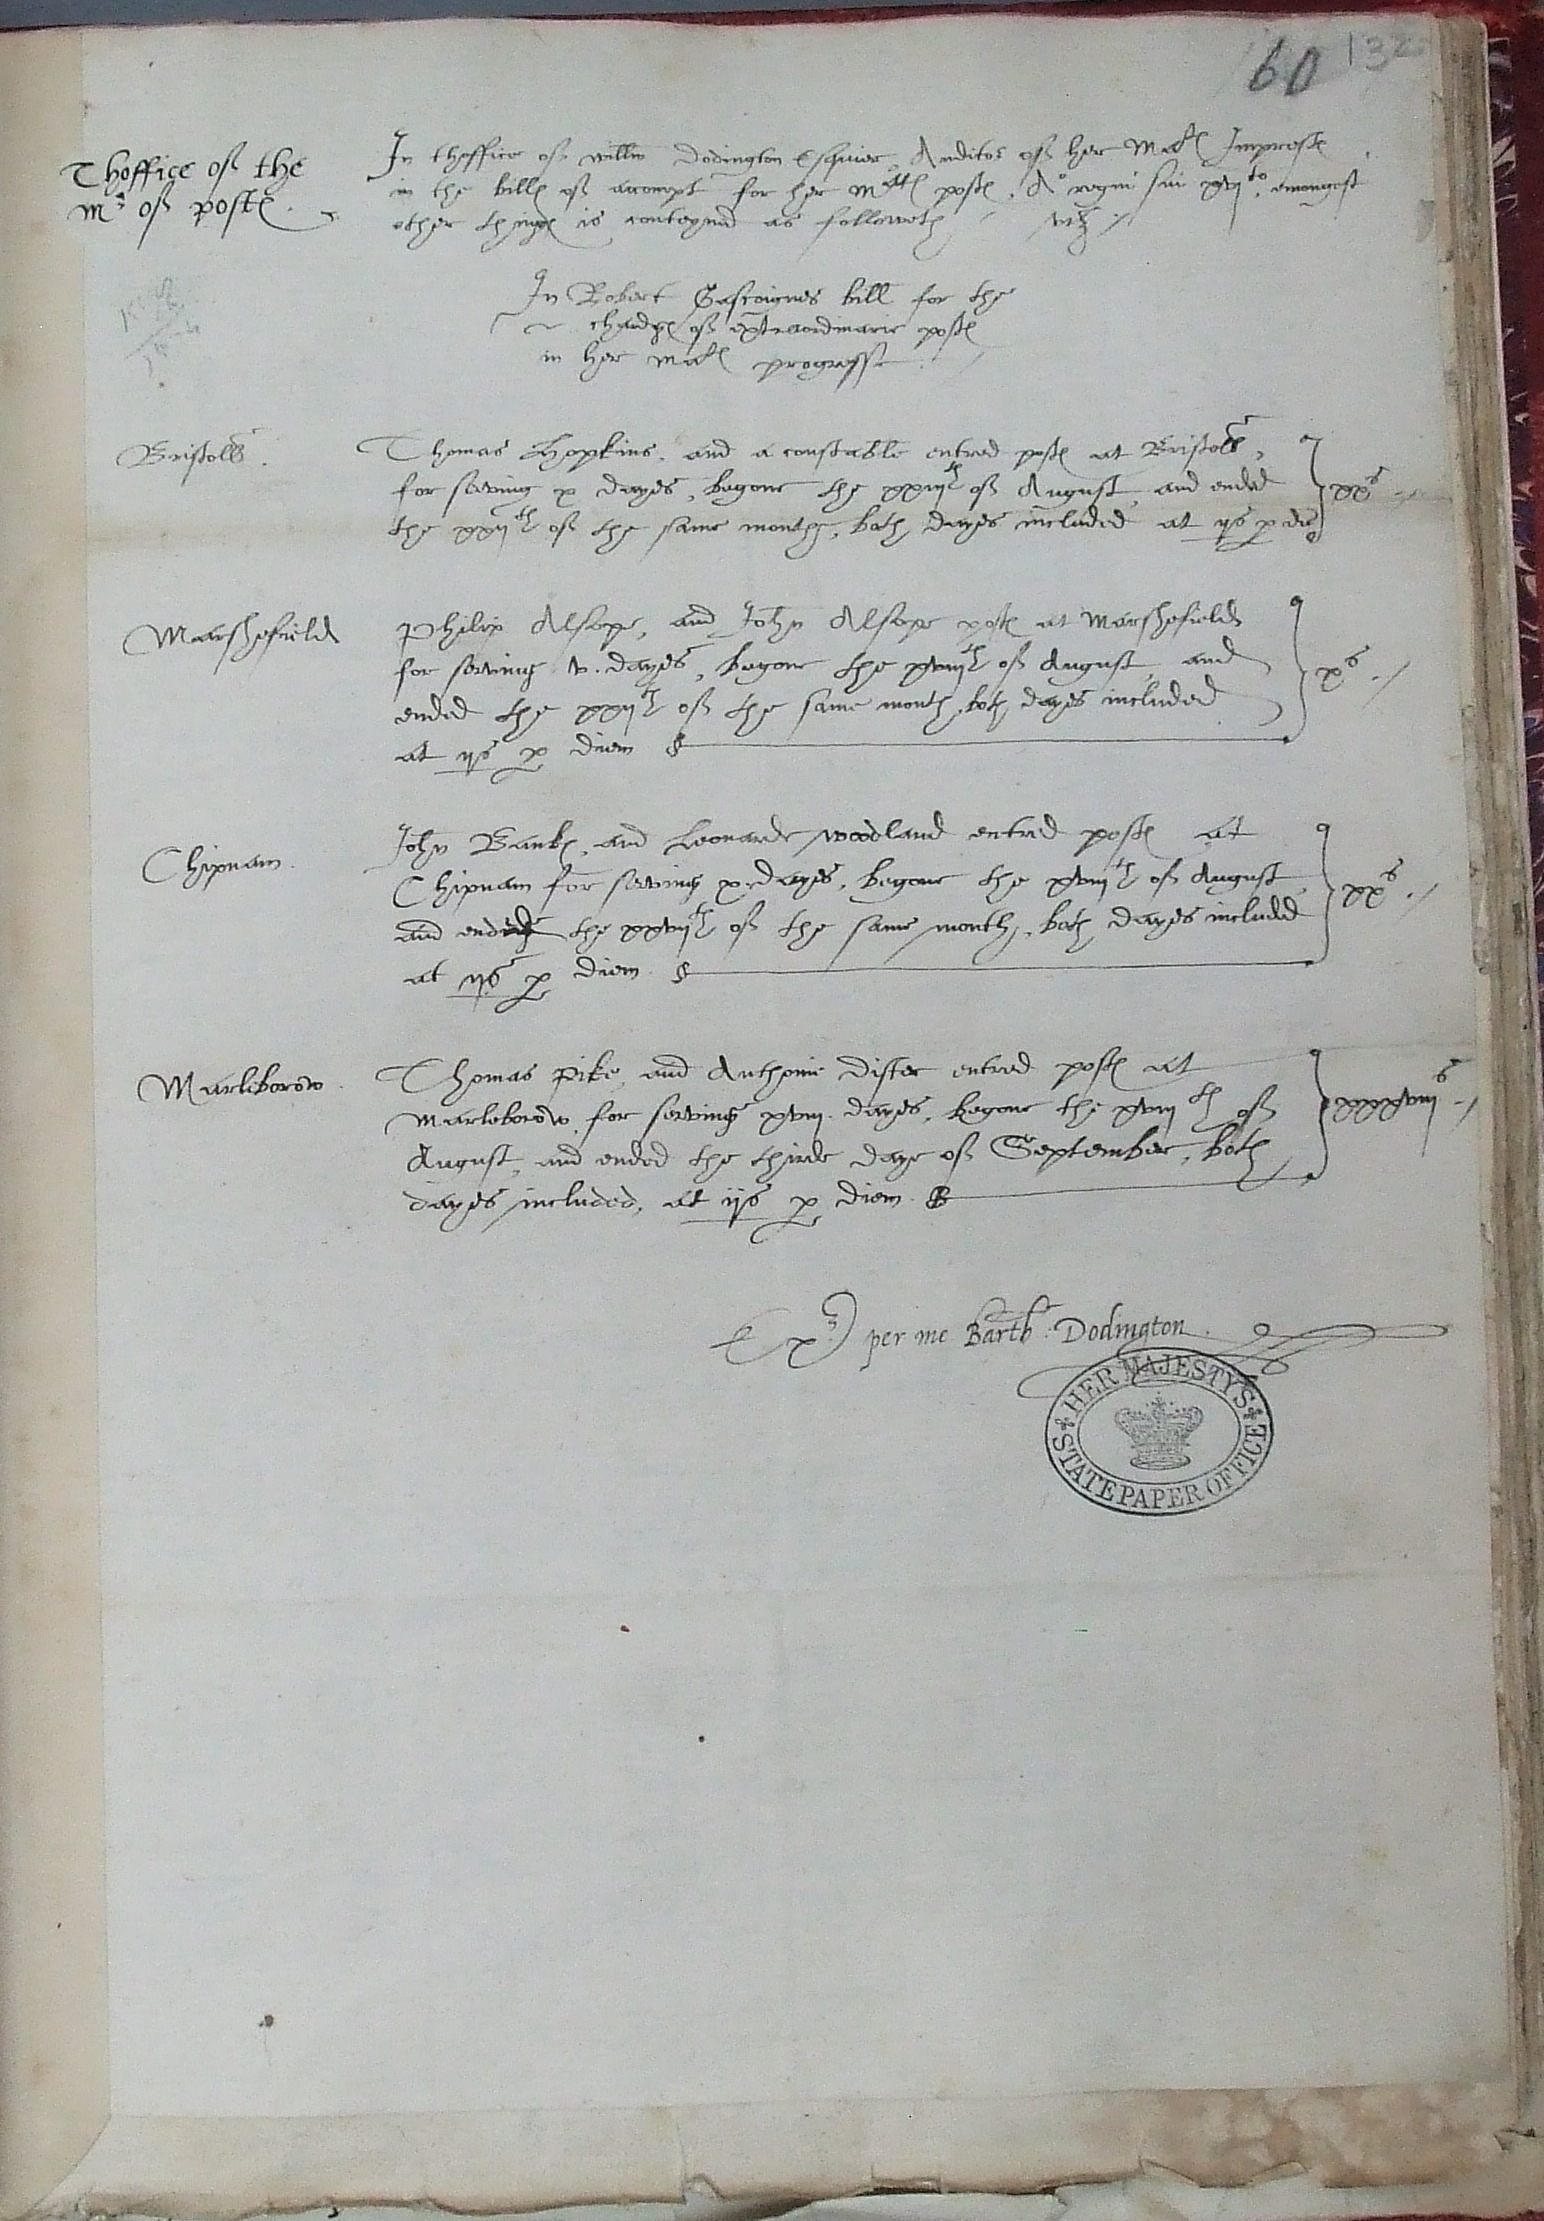 60 132
Thoffice of the
Mr of postes.
In thoffice of willm Dodington Esquier, Auditor of her Mats Impreste
in the billes of accompt for her Mats postes, Ao regni sui xvjto, emongest
other thinges is conteyned as followeth vizt
In Robert Gascoignes bill for the
chardges of extraordinarie postes
in her Mats progresse.
Bristoll.
Thomas Hopkins, and a constable entred postes at Bristoll,
for serving x dayes, begone the xxiijth of August and ended
the xxijth of the same monthe, both dayes included at ijs p diē
xxs
Marshefield
Philip Alsope, and John Alsope postes at Marshefield
for serving v. dayes, begone the xviijth of August, and
ended the xxijth of the same month, both dayes included
at ijs p diem
xs
Chipnam.
John Bankes, and Leonarde woodland entred postes at
Chipnam for serving x dayes, begone the xviijth of August
and ended the xxvijth of the same month, both dayes included
at ijs p diem.
xxs
Marleborow.
Thomas Pike, and Anthonie Dister entred postes at
Marleborow, for serving xviij dayes, begone the xviijth of
August, and ended the thirde daye of September, both
dayes included, at ijs p diem.
xxxviijs
Exr per me Barth: Dodington.
HER MAJESTY'S
STATE PAPER OFFICE